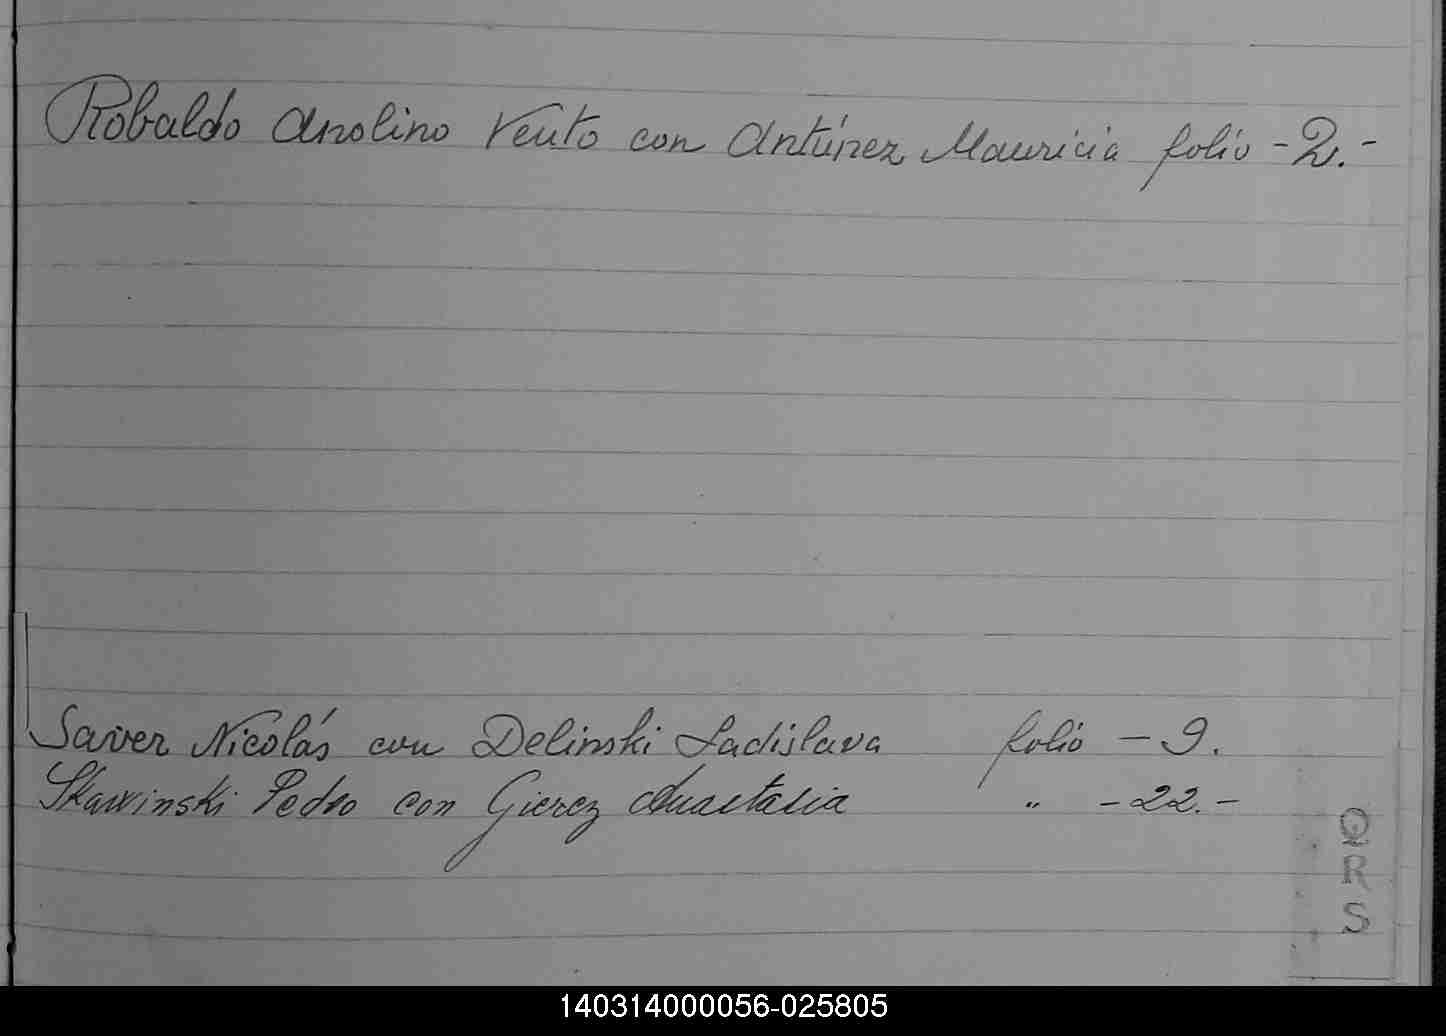 Robaldo Anolino Vento con Antúnez Mauricia folio - 2. -
Saver Nicolás con Delinski Ladislava folio - 9.
Skawinski Pedro con Gierez Anastasia " - 22. -
Q
R
S
140314000056-025805